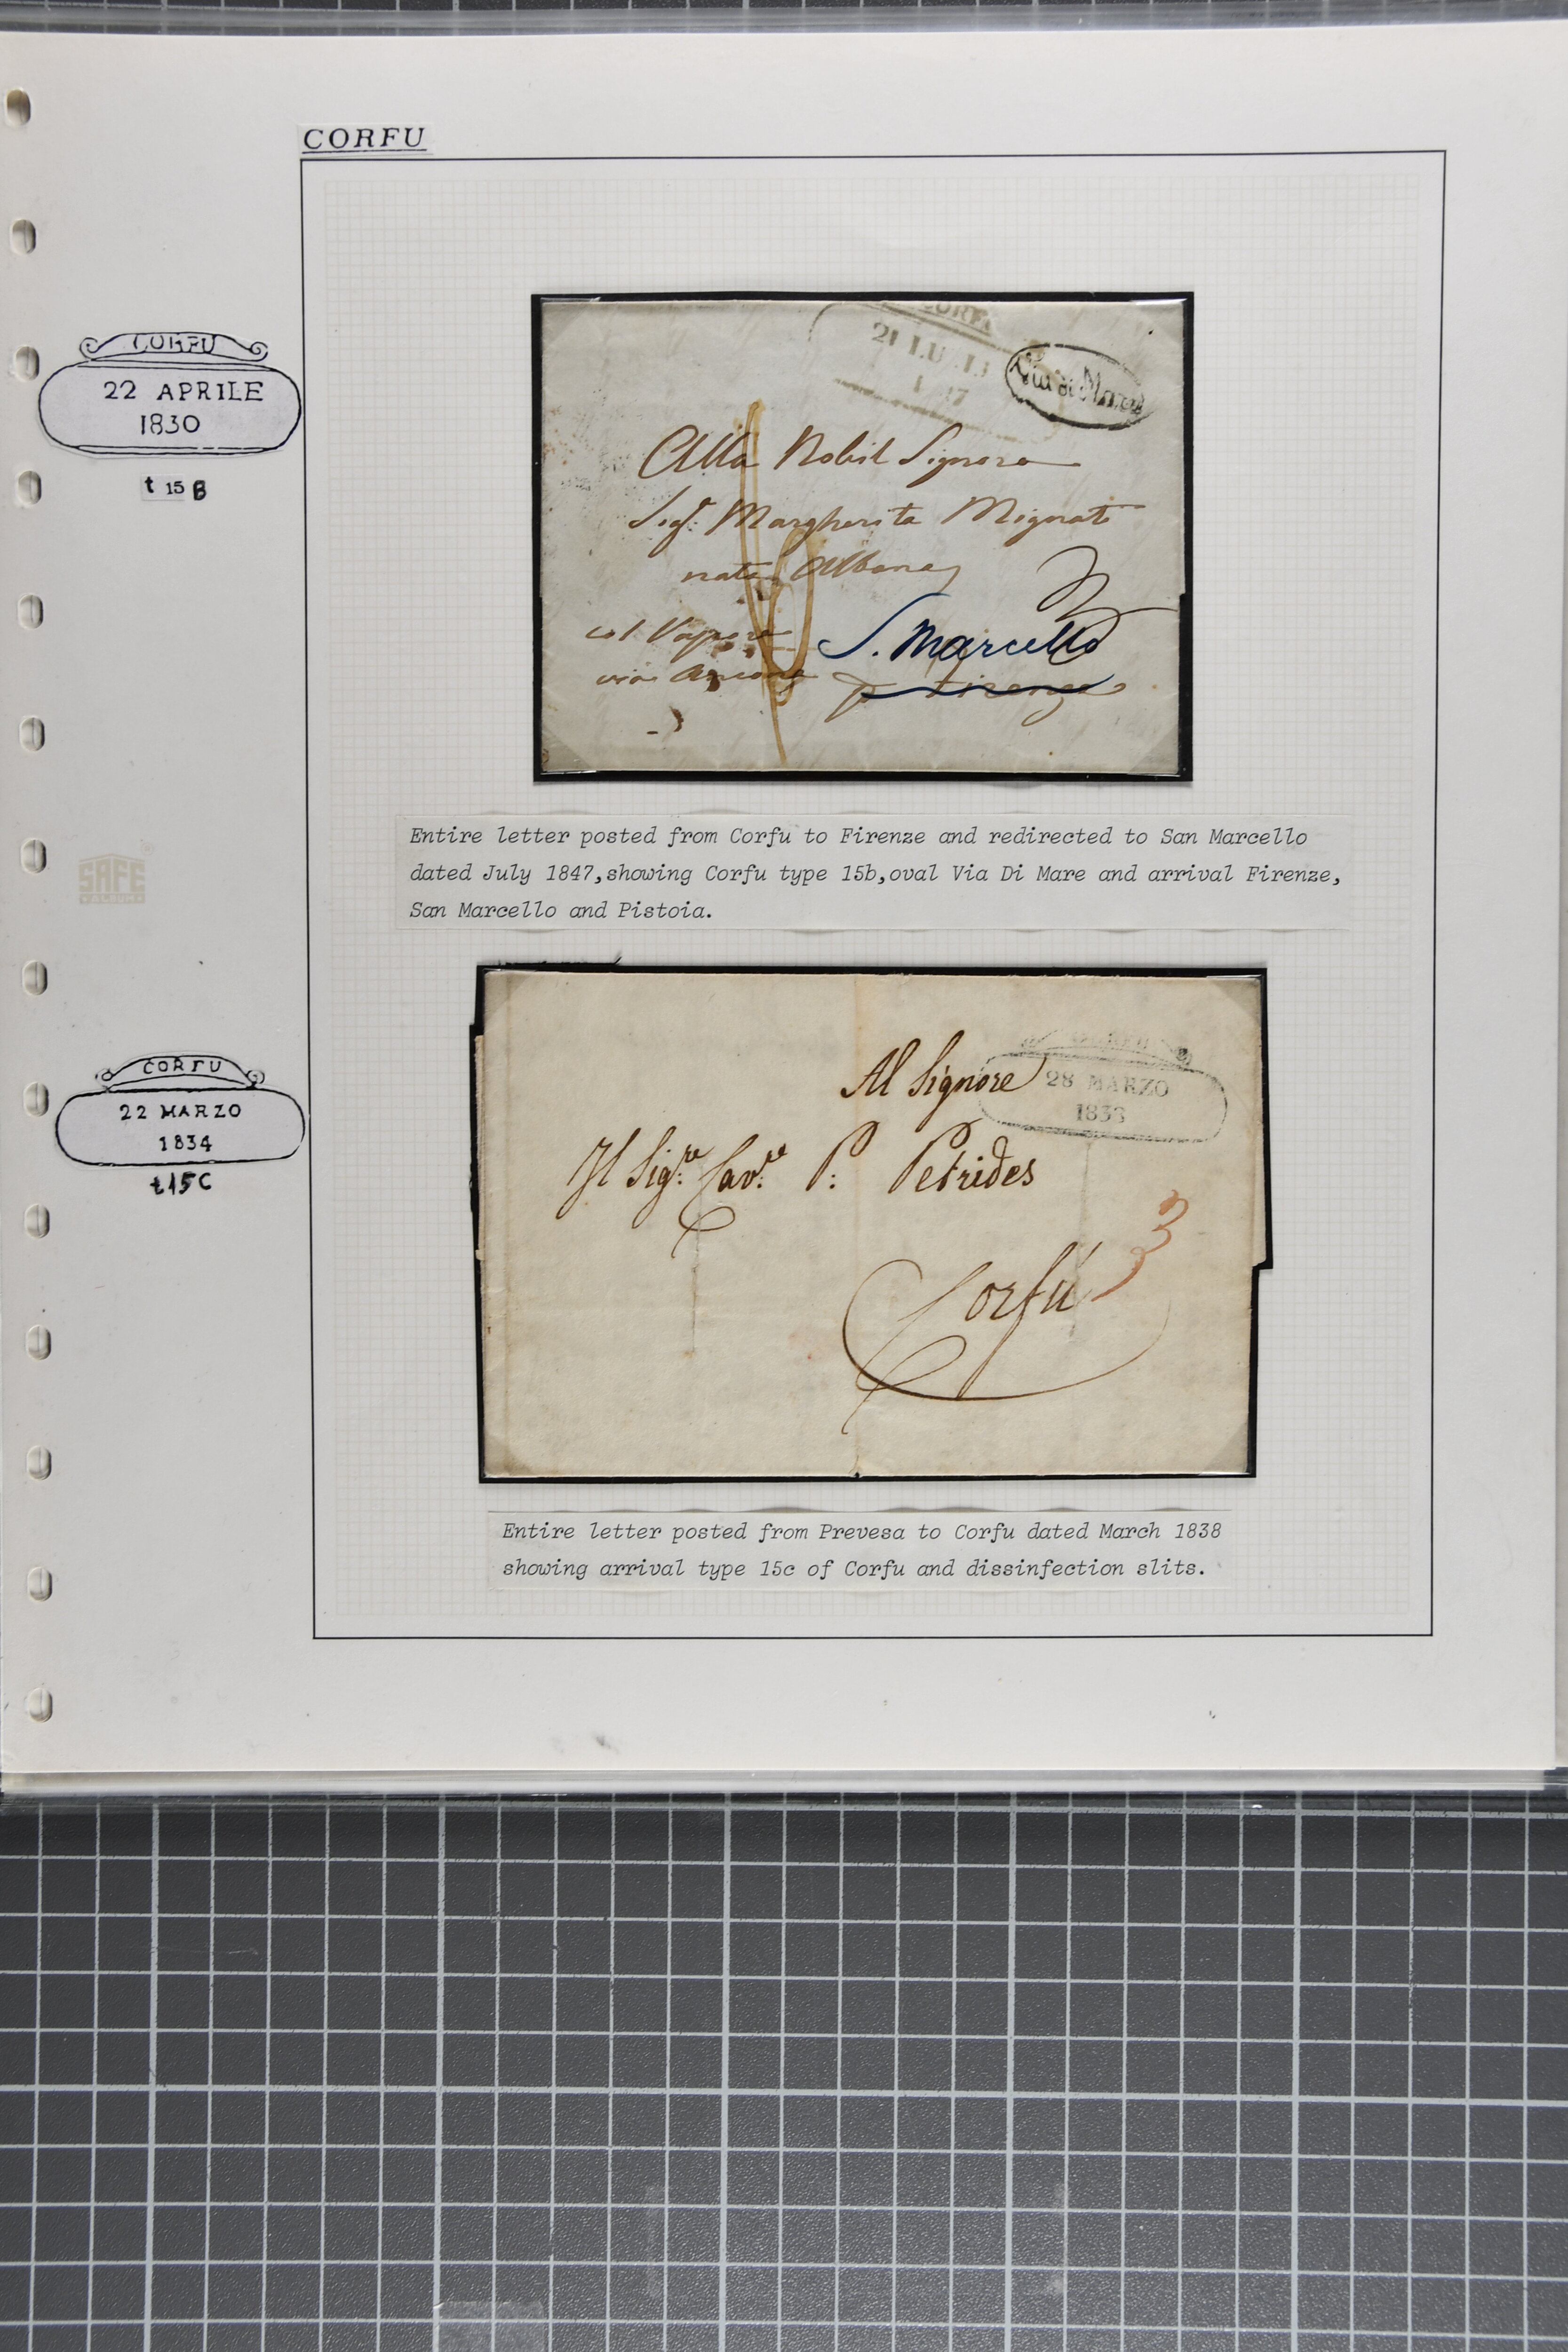 CORFU
CORFU
22 APRILE
1830
t 15 B
CORFU
Via di Mare
Alla Nobil Signora
Sigra: Margherita Mignati
nata Albana
col Vapore
via Ancona
S. Marcello
p Firenze
Entire letter posted from Corfu to Firenze and redirected to San Marcello
dated July 1847,showing Corfu type 15b,oval Via Di Mare and arrival Firenze,
San Marcello and Pistoia.
SAFE
ALBUM
CORFU
22 MARZO
1834
t15C
CORFU
28 MARZO
1838
Al Signore
Il Sigre: Cavre: P: Petrides
3
Corfú
Entire letter posted from Prevesa to Corfu dated March 1838
showing arrival type 15c of Corfu and dissinfection slits.